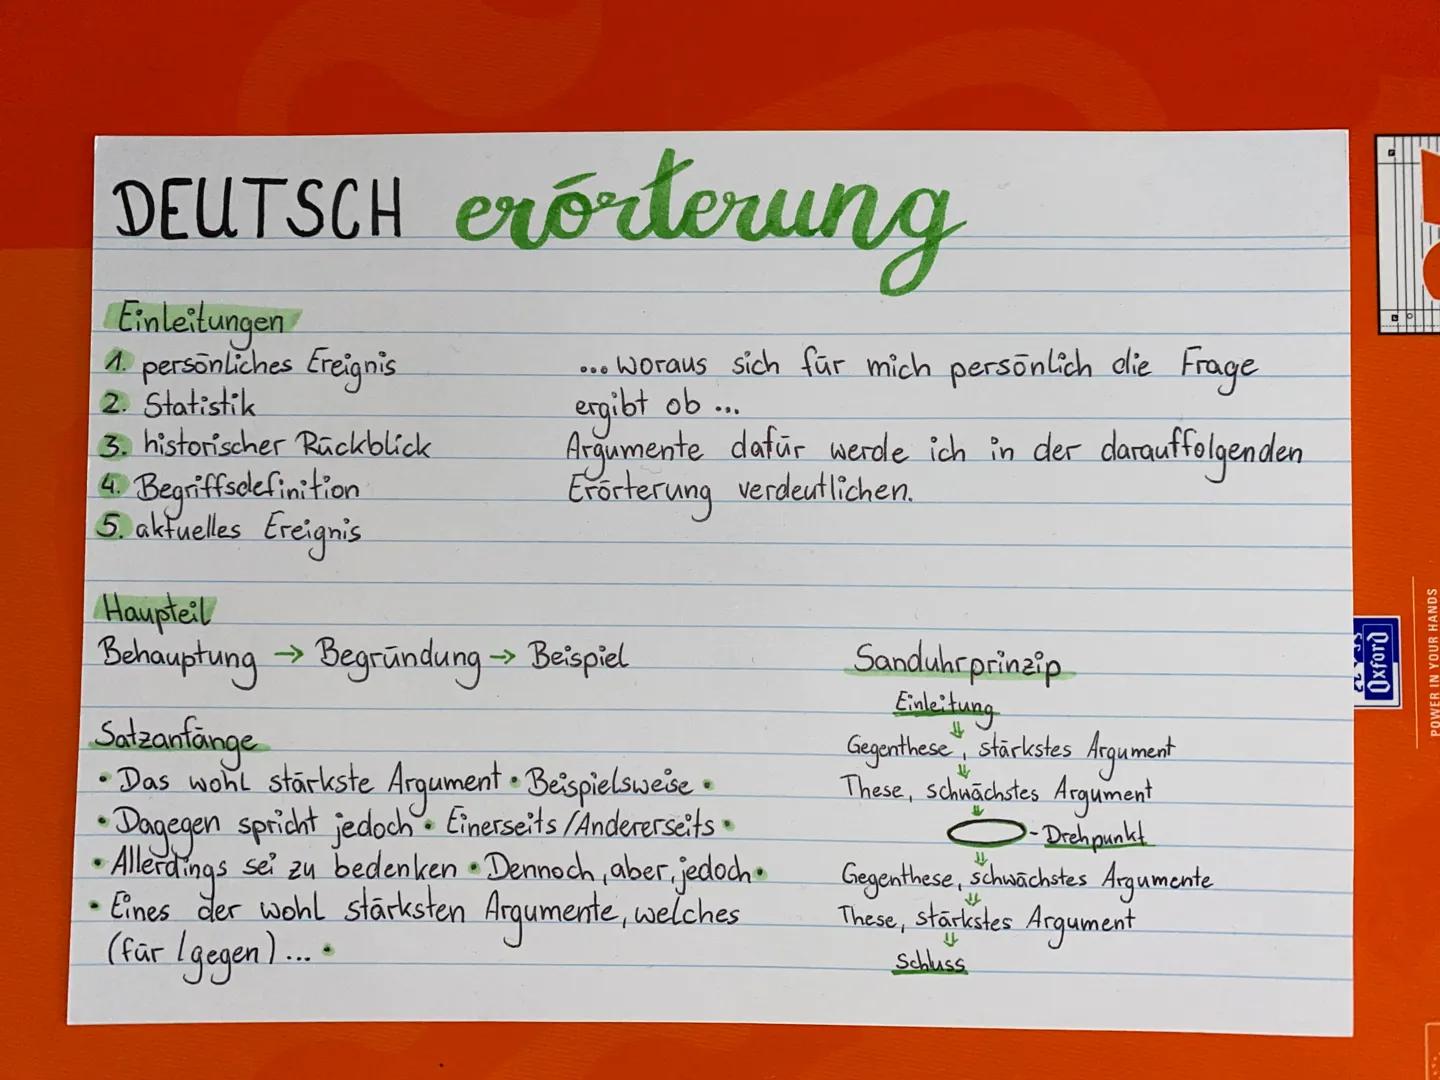 DEUTSCH erörterung
Einleitungen
1. persönliches Ereignis
2. Statistik
3. historischer Rückblick
4. Begriffsdefinition
5. aktuelles Ereignis
... woraus sich für mich persönlich die Frage
ergibt ob ...
Argumente dafür werde ich in der darauffolgenden
Erörterung verdeutlichen.
Haupteil
Behauptung → Begründung → Beispiel
Satzanfänge
• Das wohl stärkste Argument • Beispielsweise •
• Dagegen spricht jedoch • Einerseits/Andererseits •
• Allerdings sei zu bedenken • Dennoch, aber, jedoch •
• Eines der wohl stärksten Argumente, welches
(für/gegen)... •
Sanduhrprinzip
Einleitung
⇓
Gegenthese, stärkstes Argument
⇓
These, schwächstes Argument
⇓
- Drehpunkt
⇓
Gegenthese, schwächstes Argumente
⇓
These, stärkstes Argument
⇓
Schluss
Oxford
POWER IN YOUR HANDS